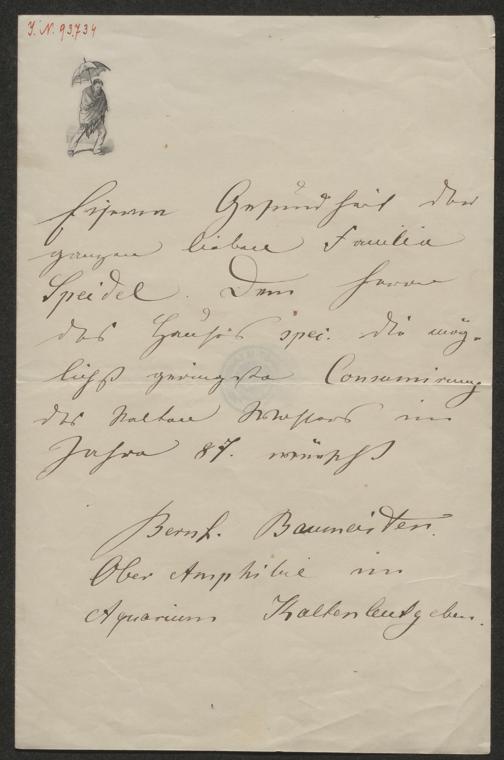 I. N. 93.734
Eiserne Gesundheit der
ganzen lieben Familie
Speidel. Dem Herrn
des Hauses spec. die mög-
lichst geringste Consumirung
des kalten Wassers im
Jahre 87. wünscht
Bernh. Baumeister.
Ober Amphibie im
Aquarium Kaltenleutgeben.